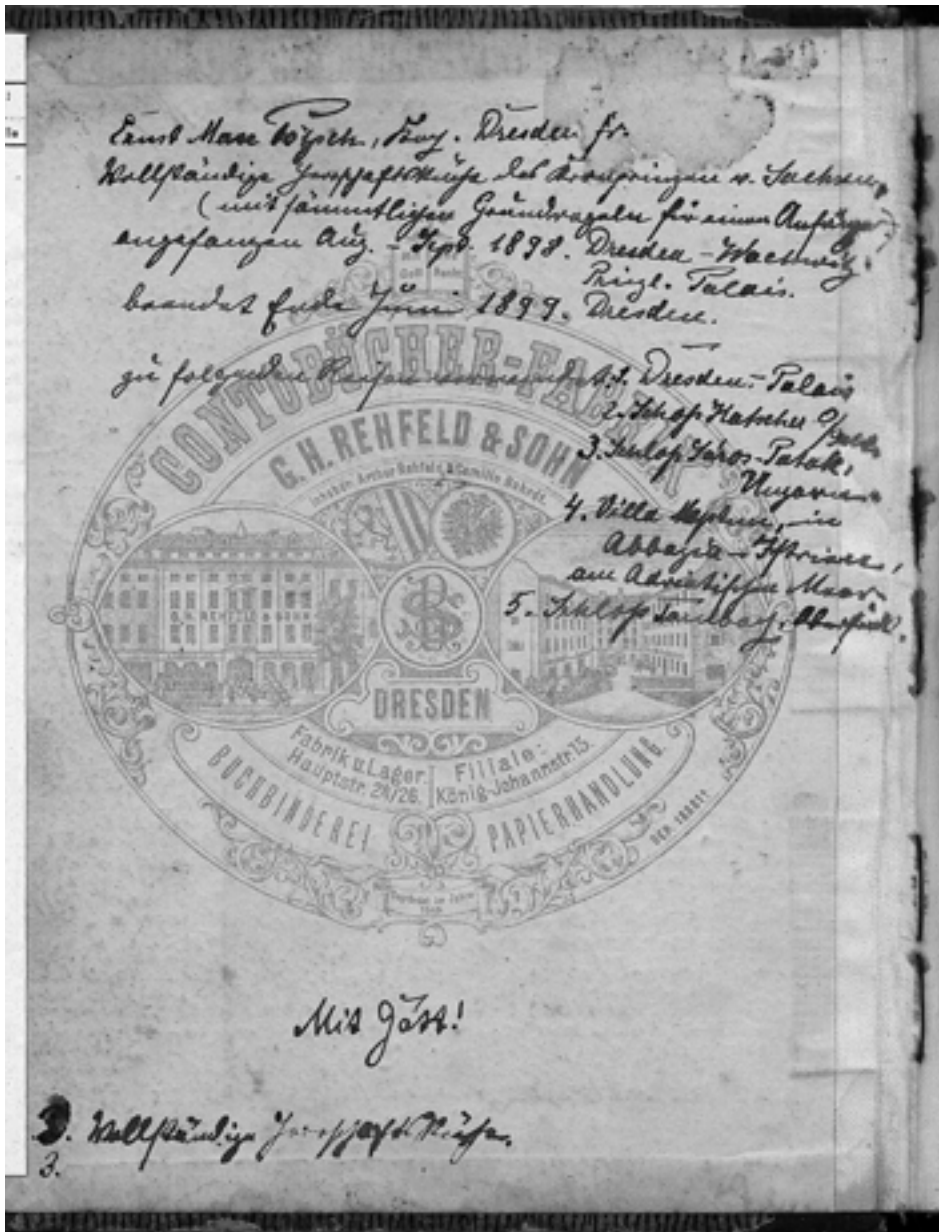 Ernst Max Pötzsch, Dresden fr.
Vollständige Herrschaftsküche des Kronprinzen v. Sachsen,
(mit sämmtlichen Grundregeln für einen Anfänger)
angefangen Aug. - Sept. 1898. Dresden - Wachwitz.
Prinzl. Palais.
beendet Ende Juni 1899. Dresden.
zu folgenden Reisen verwendet: 1. Dresden - Palais
2. Schloß Katscher
3. Schloß Sáros-Patak,
Ungarn
4. Villa Neptun, in
Abbazia - Istrien,
am Adriatischen Meer
5. Schloß
CONTOBÜCHER-FABRIK
G. H. REHFELD & SOHN
Inhaber: Arthur Rehfeld & Camillo Rohrdt.
G.H. REHFELD & SOHN
DRESDEN
Fabrik u. Lager: Hauptstr. 24/26.
Filiale: König-Johannstr. 15.
BUCHBINDEREI
PAPIERHANDLUNG
Mit Gott!
3. Vollständige Herrschaftsküche.
3.